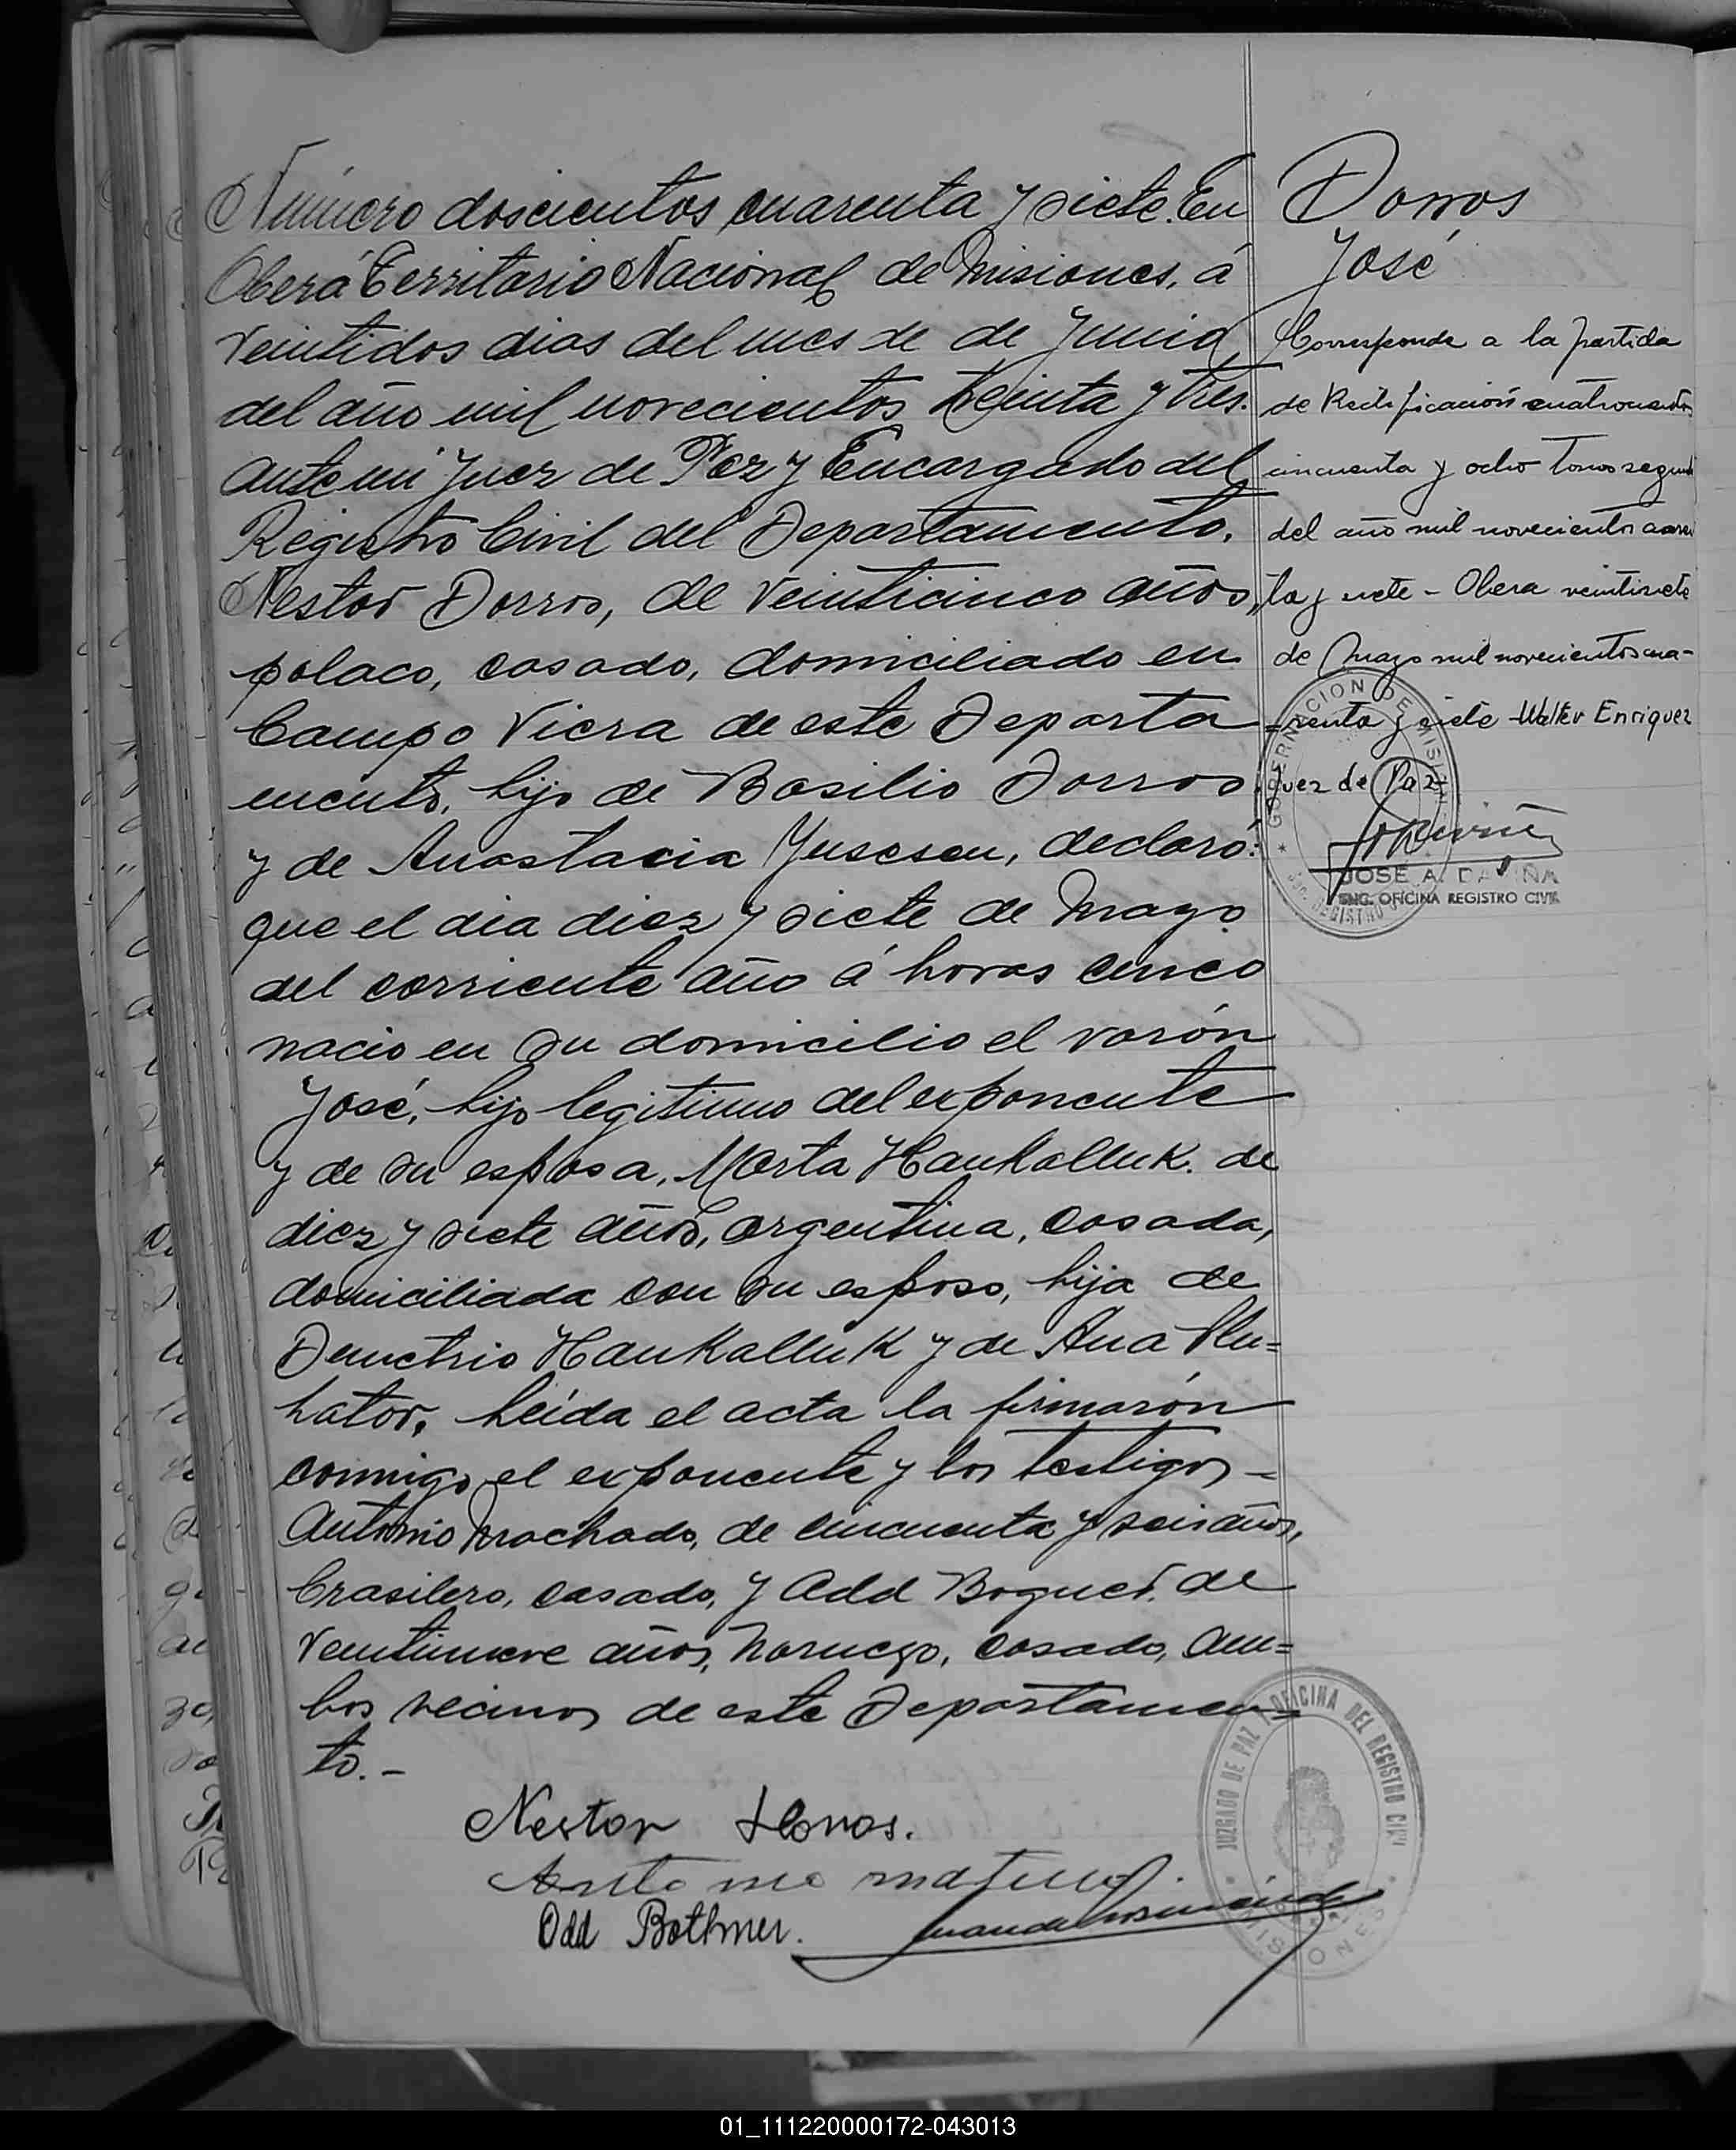 Número doscientos cuarenta y siete. En
Oberá Territorio Nacional de Misiones, á
veintidos dias del mes de de Junio,
del año mil novecientos treinta y tres.
ante mi Juez de Paz y Encargado del
Registro Civil del Departamento,
Nestor Dorros, de veinticinco años,
polaco, casado, domiciliado en
Campo Viera de este Departa
mento, hijo de Basilio Dorros
y de Anastacia, declaró:
que el dia diez y siete de Mayo
del corriente año á horas cinco
nacio en su domicilio el varón
José, hijo legitimo del exponente
y de su esposa, Marta Hankalluk. de
diez y siete años, argentina, casada,
domiciliada con su esposo, hija de
Demetrio Hankalluk y de Ana Plu=
hator. Leída el acta la firmarón
conmigo el exponente y los testigos =
Antonio Machado, de cincuenta y seis años,
brasilero, casado, y Odd de
veintinueve años, noruego, casado, am=
bos vecinos de este Departamen=
to. -
Nestor
Antonio
Odd Bothner.
Dorros
José
Corresponde a la partida
de Rectificación cuatrocientos
cincuenta y ocho Tomo segundo
del año mil novecientos cuaren
ta y siete - Obera veintisiete
de Mayo mil novecientos cua-
renta y siete - Walter Enriquez
Juez de Paz
GOBERNACION DE MISIONES
REGISTRO
JOSÉ A. DAVIÑA
ENC. OFICINA REGISTRO CIVIL
JUZGADO DE PAZ Y OFICINA DEL REGISTRO CIVIL
MISIONES
01_111220000172-043013